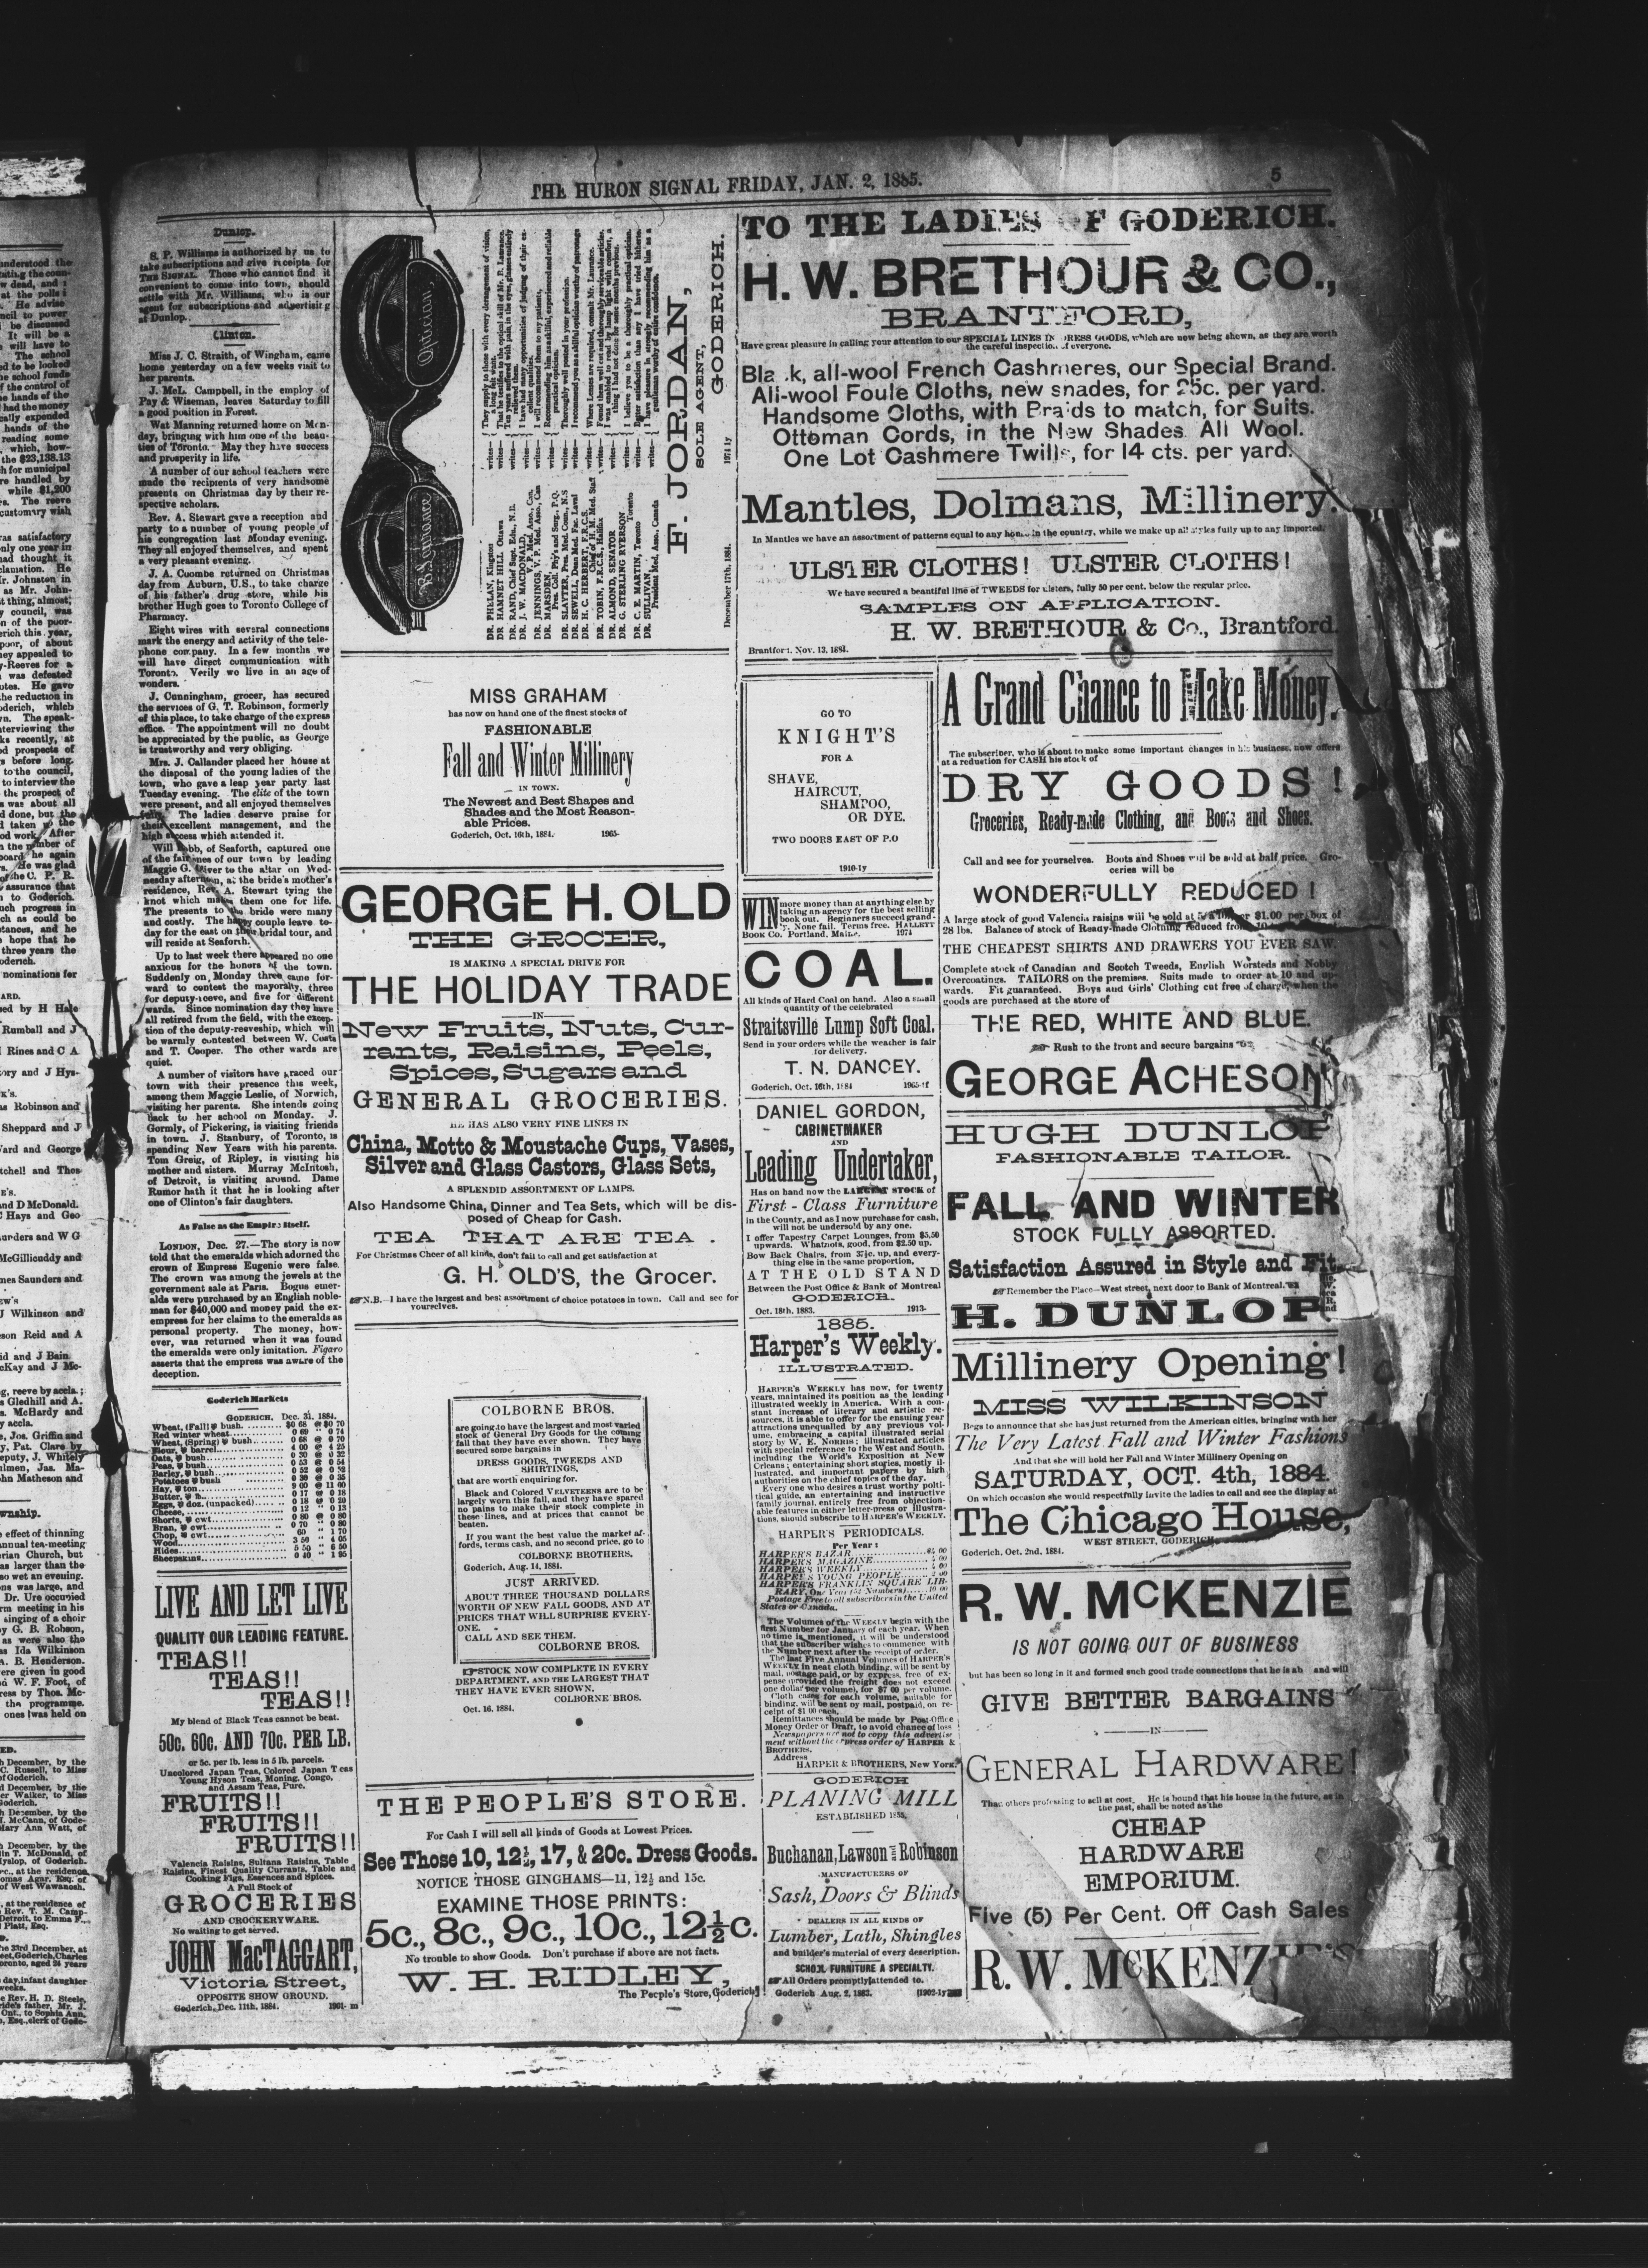 THE HURON SIGNAL FRIDAY, JAN. 2, 1885.
5
Dunlop.
S. P. Williams is authorized by us to
take subscriptions and give receipts for
THE SIGNAL. Those who cannot find it
convenient to come into town, should
settle with Mr. Williams, who is our
agent for subscriptions and advertising
at Dunlop.
Clinton.
Miss J. C. Straith, of Wingham, came
home yesterday on a few weeks visit to
her parents.
J. McL. Campbell, in the employ of
Pay & Wiseman, leaves Saturday to fill
a good position in Forest.
Wat Manning returned home on Mon-
day, bringing with him one of the beau-
ties of Toronto. May they have success
and prosperity in life.
A number of our school teachers were
made the recipients of very handsome
presents on Christmas day by their re-
spective scholars.
Rev. A. Stewart gave a reception and
party to a number of young people of
his congregation last Monday evening.
They all enjoyed themselves, and spent
a very pleasant evening.
J. A. Coombe returned on Christmas
day from Auburn, U.S., to take charge
of his father's drug store, while his
brother Hugh goes to Toronto College of
Pharmacy.
Eight wires with several connections
mark the energy and activity of the tele-
phone company. In a few months we
will have direct communication with
Toronto. Verily we live in an age of
wonders.
J. Cunningham, grocer, has secured
the services of G. T. Robinson, formerly
of this place, to take charge of the express
office. The appointment will no doubt
be appreciated by the public, as George
is trustworthy and very obliging.
Mrs. J. Callander placed her house at
the disposal of the young ladies of the
town, who gave a leap year party last
Tuesday evening. The elite of the town
were present, and all enjoyed themselves
fully. The ladies deserve praise for
their excellent management, and the
high success which attended it.
Will bb, of Seaforth, captured one
of the fair ones of our town by leading
Maggie G. Oliver to the altar on Wed-
nesday afternoon, at the bride's mother's
residence, Rev. A. Stewart tying the
knot which makes them one for life.
The presents to the bride were many
and costly. The happy couple leave to-
day for the east on their bridal tour, and
will reside at Seaforth.
Up to last week there appeared no one
anxious for the honors of the town.
Suddenly on Monday three came for-
ward to contest the mayoralty, three
for deputy-reeve, and five for different
wards. Since nomination day they have
all retired from the field, with the excep-
tion of the deputy-reeveship, which will
be warmly contested between W. Coats
and T. Cooper. The other wards are
quiet.
A number of visitors have graced our
town with their presence this week,
among them Maggie Leslie, of Norwich,
visiting her parents. She intends going
back to her school on Monday. J.
Gormly, of Pickering, is visiting friends
in town. J. Stanbury, of Toronto, is
spending New Years with his parents.
Tom Greig, of Ripley, is visiting his
mother and sisters. Murray McIntosh,
of Detroit, is visiting around. Dame
Rumor hath it that he is looking after
one of Clinton's fair daughters.
As False as the Empire Itself.
LONDON, Dec. 27.—The story is now
told that the emeralds which adorned the
crown of Empress Eugenie were false.
The crown was among the jewels at the
government sale at Paris. Bogus emer-
alds were purchased by an English noble-
man for $40,000 and money paid the ex-
empress for her claims to the emeralds as
personal property. The money, how-
ever, was returned when it was found
the emeralds were only imitation. Figaro
asserts that the empress was aware of the
deception.
Goderich Markets
GODERICH, Dec. 31, 1884.
Wheat, (Fall) ℔ bush. $0 68 @ $0 70
Red winter wheat 0 69 " 0 74
Wheat, (Spring) ℔ bush 0 68 @ 0 70
Flour, ℔ barrel 4 00 @ 4 25
Oats, ℔ bush 0 30 @ 0 32
Peas, ℔ bush 0 53 @ 0 54
Barley, ℔ bush 0 52 @ 0 53
Potatoes ℔ bush 0 30 @ 0 35
Hay, ℔ ton 9 00 @ 11 00
Butter, ℔ lb 0 17 @ 0 18
Eggs, ℔ doz. (unpacked) 0 18 @ 0 20
Cheese, 0 12 " 0 13
Shorts, ℔ cwt 0 80 @ 0 80
Bran, ℔ cwt 0 70 " 0 80
Chop, ℔ cwt 60 " 1 70
Wood 3 50 " 4 05
Hides 5 50 " 6 50
Sheepskins 0 40 " 1 95
LIVE AND LET LIVE
QUALITY OUR LEADING FEATURE.
TEAS!!
TEAS!!
TEAS!!
My blend of Black Teas cannot be beat.
50c. 60c. AND 70c. PER LB.
or 5c. per lb. less in 5 lb. parcels.
Uncolored Japan Teas, Colored Japan Teas
Young Hyson Teas, Moning, Congo,
and Assam Teas, Pure.
FRUITS!!
FRUITS!!
FRUITS!!
Valencia Raisins, Sultana Raisins, Table
Raisins, Finest Quality Currants, Table and
Cooking Figs, Essences and Spices.
A Full Stock of
GROCERIES
AND CROCKERYWARE.
No waiting to get served.
JOHN MacTAGGART,
Victoria Street,
OPPOSITE SHOW GROUND.
Goderich, Dec. 11th, 1884. 1981- m
Optician,
B. Laurance
DR. PHELAN, Kingston writes— They supply to those with every derangement of vision, a long felt want.
DR. HAMNET HILL Ottawa writes— That he testifies to the optical skill of Mr. B. Laurance.
DR. RAND, Chief Supt. Edn., N.B. writes— Two years suffered with pain in the eyes, glasses entirely relieved them.
DR. J. W. MACDONALD, V. P. Med. Asso., Can. writes— I have had many opportunities of judging of their excellent qualities.
DR. JENNINGS, V. P. Med. Asso., Can writes— I will recommend them to my patients.
DR. MARSDEN, Pres. Coll. Phy's and Surg., P.Q. writes— Recommending him as a skilful, experienced and reliable practical optician.
DR. SLAYTER, Pres. Med. Coun., N.S writes— Thoroughly well posted in your profession.
DR. SEWELL, Dean Med. Fac. Laval writes— I recommend you as a skilful optician worthy of patronage
DR. H. C. HERBERT, F.R.C.S. Chief of H. M. Med. Staff writes— When Lenses are required, consult Mr. Laurance.
DR. TOBIN, F.R.C.S., Halifax writes— Found them well cut and thoroughly serviceable articles.
DR. ALMOND, SENATOR writes— I was enabled to read by lamp light with comfort, a thing I had not done for some months previous.
DR. G. STERLING RYERSON Toronto writes— I believe you to be a thoroughly practical optician.
DR. C. E. MARTIN, Toronto writes— Better satisfaction than any I have tried hitherto.
DR. SULLIVAN, President Med. Asso. Canada writes— I have pleasure in strongly recommending him as a gentleman worthy of entire confidence.
F. JORDAN,
SOLE AGENT,
GODERICH.
December 17th, 1884. 1974 1y
MISS GRAHAM
has now on hand one of the finest stocks of
FASHIONABLE
Fall and Winter Millinery
IN TOWN.
The Newest and Best Shapes and
Shades and the Most Reason-
able Prices.
Goderich, Oct. 16th, 1884. 1965-
GEORGE H. OLD
THE GROCER,
IS MAKING A SPECIAL DRIVE FOR
THE HOLIDAY TRADE
—IN—
New Fruits, Nuts, Cur-
rants, Raisins, Peels,
Spices, Sugars and
GENERAL GROCERIES.
HE HAS ALSO VERY FINE LINES IN
China, Motto & Moustache Cups, Vases,
Silver and Glass Castors, Glass Sets,
A SPLENDID ASSORTMENT OF LAMPS.
Also Handsome China, Dinner and Tea Sets, which will be dis-
posed of Cheap for Cash.
TEA THAT ARE TEA.
For Christmas Cheer of all kinds, don't fail to call and get satisfaction at
G. H. OLD'S, the Grocer.
☞ N.B.—I have the largest and best assortment of choice potatoes in town. Call and see for
yourselves.
COLBORNE BROS.
are going to have the largest and most varied
stock of General Dry Goods for the coming
fall that they have ever shown. They have
secured some bargains in
DRESS GOODS, TWEEDS AND
SHIRTINGS,
that are worth enquiring for.
Black and Colored VELVETEENS are to be
largely worn this fall, and they have spared
no pains to make their stock complete in
these lines, and at prices that cannot be
beaten.
If you want the best value the market af-
fords, terms cash, and no second price, go to
COLBORNE BROTHERS.
Goderich, Aug. 14, 1884.
JUST ARRIVED.
ABOUT THREE THOUSAND DOLLARS
WORTH OF NEW FALL GOODS, AND AT
PRICES THAT WILL SURPRISE EVERY-
ONE.
CALL AND SEE THEM.
COLBORNE BROS.
☞STOCK NOW COMPLETE IN EVERY
DEPARTMENT, AND THE LARGEST THAT
THEY HAVE EVER SHOWN.
COLBORNE BROS.
Oct. 16, 1884.
THE PEOPLE'S STORE.
For Cash I will sell all kinds of Goods at Lowest Prices.
See Those 10, 12½, 17, & 20c. Dress Goods.
NOTICE THOSE GINGHAMS—11, 12½ and 15c.
EXAMINE THOSE PRINTS:
5c., 8c., 9c., 10c., 12½c.
No trouble to show Goods. Don't purchase if above are not facts.
W. H. RIDLEY,
The People's Store, Goderich
TO THE LADIES OF GODERICH.
H. W. BRETHOUR & CO.,
BRANTFORD,
Have great pleasure in calling your attention to our SPECIAL LINES IN DRESS GOODS, which are now being shewn, as they are worth
the careful inspection of everyone.
Black, all-wool French Cashmeres, our Special Brand.
All-wool Foule Cloths, new shades, for 25c. per yard.
Handsome Cloths, with Braids to match, for Suits.
Ottoman Cords, in the New Shades All Wool.
One Lot Cashmere Twills, for 14 cts. per yard.
Mantles, Dolmans, Millinery.
In Mantles we have an assortment of patterns equal to any house in the country, while we make up all styles fully up to any imported.
ULSTER CLOTHS! ULSTER CLOTHS!
We have secured a beautiful line of TWEEDS for ulsters, fully 50 per cent. below the regular price.
SAMPLES ON APPLICATION.
H. W. BRETHOUR & Co., Brantford.
Brantford, Nov. 13, 1884.
GO TO
KNIGHT'S
FOR A
SHAVE,
HAIRCUT,
SHAMPOO,
OR DYE.
TWO DOORS EAST OF P.O
1910-1y
WIN more money than at anything else by
taking an agency for the best selling
book out. Beginners succeed grand-
ly. None fail. Terms free. HALLETT
BOOK Co. Portland, Maine. 1974
COAL.
All kinds of Hard Coal on hand. Also a small
quantity of the celebrated
Straitsville Lump Soft Coal.
Send in your orders while the weather is fair
for delivery.
T. N. DANCEY.
Goderich, Oct. 16th, 1884 1965-tf
DANIEL GORDON,
CABINETMAKER
AND
Leading Undertaker,
Has on hand now the LARGEST STOCK of
First-Class Furniture
in the County, and as I now purchase for cash,
will not be undersold by any one.
I offer Tapestry Carpet Lounges, from $5.50
upwards. Whatnots, good, from $2.50 up.
Bow Back Chairs, from 37½c. up, and every-
thing else in the same proportion,
AT THE OLD STAND
Between the Post Office & Bank of Montreal
GODERICH.
Oct. 18th, 1883. 1913-
1885.
Harper's Weekly.
ILLUSTRATED.
HARPER'S WEEKLY has now, for twenty
years, maintained its position as the leading
illustrated weekly in America. With a con-
stant increase of literary and artistic re-
sources, it is able to offer for the ensuing year
attractions unequalled by any previous vol-
ume, embracing a capital illustrated serial
story by W. E. NORRIS; illustrated articles
with special reference to the West and South,
including the World's Exposition at New
Orleans; entertaining short stories, mostly il-
lustrated, and important papers by high
authorities on the chief topics of the day.
Every one who desires a trust worthy polti-
tical guide, an entertaining and instructive
family journal, entirely free from objection-
able features in either letter-press or illustra-
tions, should subscribe to HARPER'S WEEKLY.
HARPER'S PERIODICALS.
Per Year:
HARPER'S BAZAR $4 00
HARPER'S MAGAZINE 4 00
HARPER'S WEEKLY 4 00
HARPER'S YOUNG PEOPLE 2 00
HARPER'S FRANKLIN SQUARE LIB-
RARY, One Year (52 Numbers) 10 00
Postage Free to all subscribers in the United
States or Canada.
The Volumes of the WEEKLY begin with the
first Number for January of each year. When
no time is mentioned, it will be understood
that the subscriber wishes to commence with
the Number next after the receipt of order.
The last Five Annual Volumes of HARPER'S
WEEKLY in neat cloth binding, will be sent by
mail, postage paid, or by express, free of ex-
pense (provided the freight does not exceed
one dollar per volume), for $7 00 per volume.
Cloth cases for each volume, suitable for
binding, will be sent by mail, postpaid, on re-
ceipt of $1 00 each.
Remittances should be made by Post-Office
Money Order or Draft, to avoid chance of loss
Newspapers are not to copy this advertise
ment without the express order of HARPER &
BROTHERS.
Address
HARPER & BROTHERS, New York.
GODERICH
PLANING MILL
ESTABLISHED 1855.
Buchanan, Lawson and Robinson
MANUFACTURERS OF
Sash, Doors & Blinds
DEALERS IN ALL KINDS OF
Lumber, Lath, Shingles
and builder's material of every description.
SCHOOL FURNITURE A SPECIALTY.
☞All Orders promptly attended to.
Goderich Aug. 2, 1883. 1902-1y
A Grand Chance to Make Money.
The subscriber, who is about to make some important changes in his business, now offers
at a reduction for CASH his stock of
DRY GOODS!
Groceries, Ready-made Clothing, and Boots and Shoes.
Call and see for yourselves. Boots and Shoes will be sold at half price. Gro-
ceries will be
WONDERFULLY REDUCED!
A large stock of good Valencia raisins will be sold at or $1.00 per box of
28 lbs. Balance of stock of Ready-made Clothing reduced from
THE CHEAPEST SHIRTS AND DRAWERS YOU EVER SAW.
Complete stock of Canadian and Scotch Tweeds, English Worsteds and Nobby
Overcoatings. TAILORS on the premises. Suits made to order at 10 and up-
wards. Fit guaranteed. Boys and Girls' Clothing cut free of charge, when the
goods are purchased at the store of
THE RED, WHITE AND BLUE.
☞ Rush to the front and secure bargains
GEORGE ACHESON
HUGH DUNLOP
FASHIONABLE TAILOR.
FALL AND WINTER
STOCK FULLY ASSORTED.
Satisfaction Assured in Style and Fit.
☞ Remember the Place—West street, next door to Bank of Montreal.
H. DUNLOP.
Millinery Opening!
MISS WILKINSON
Begs to announce that she has just returned from the American cities, bringing with her
The Very Latest Fall and Winter Fashions
And that she will hold her Fall and Winter Millinery Opening on
SATURDAY, OCT. 4th, 1884.
On which occasion she would respectfully invite the ladies to call and see the display at
The Chicago House,
WEST STREET, GODERICH
Goderich, Oct. 2nd, 1884.
R. W. MCKENZIE
IS NOT GOING OUT OF BUSINESS
but has been so long in it and formed such good trade connections that he is ab and will
GIVE BETTER BARGAINS
—IN—
GENERAL HARDWARE!
Than others professing to sell at cost. He is bound that his house in the future, as in
the past, shall be noted as the
CHEAP
HARDWARE
EMPORIUM.
Five (5) Per Cent. Off Cash Sales
R. W. MCKENZIE'S